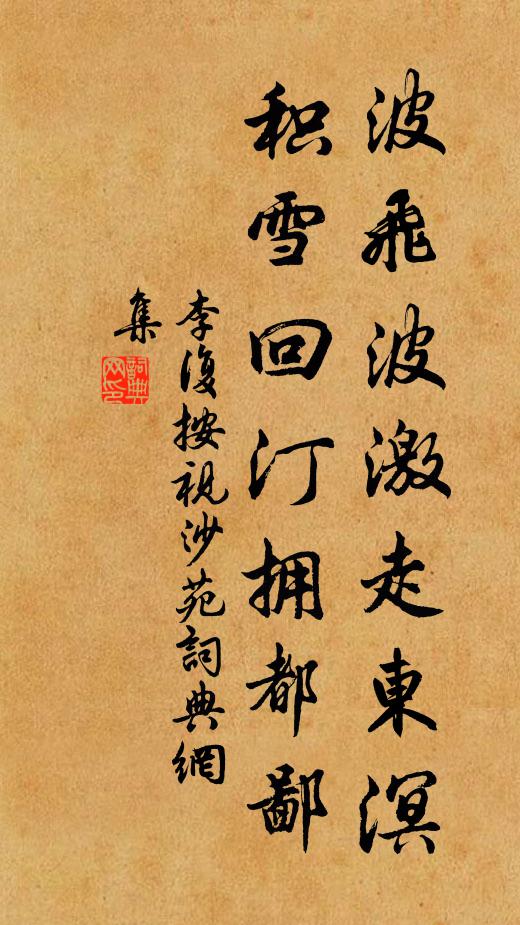 波飛波激走東溟
积雪回汀拥都鄙
李復按視沙苑詞典網
集
詞典
网印